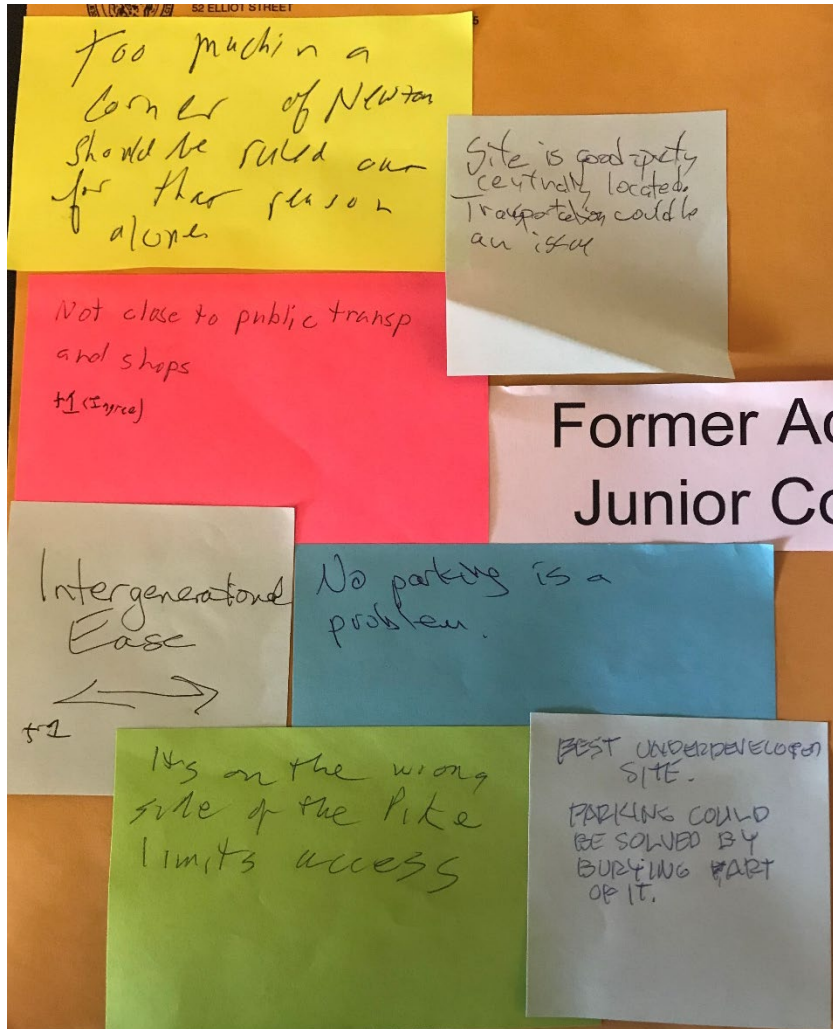 52 ELLIOT STREET
Too much in a
corner of Newton
should be ruled out
for that reason
alone
Site is good - prety
centrally located.
Transportation could be
an issue
Not close to public transp
and shops
+1 (I agree)
Former Ac
Junior Co
Intergenerational
Ease
+1
No parking is a
problem.
It's on the wrong
side of the Pike
limits access
BEST UNDERDEVELOPED
SITE.
PARKING COULD
BE SOLVED BY
BURYING PART
OF IT.